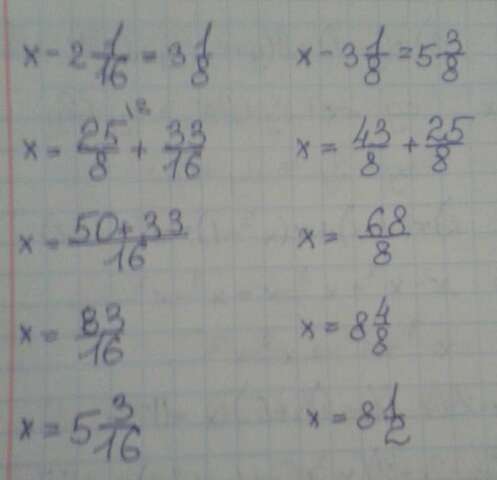 x - 2 1/16 = 3 1/8
x = 25/8 + 33/16
x = 50+33/16
x = 83/16
x = 5 3/16
x - 3 1/8 = 5 3/8
x = 43/8 + 25/8
x = 68/8
x = 8 4/8
x = 8 1/2